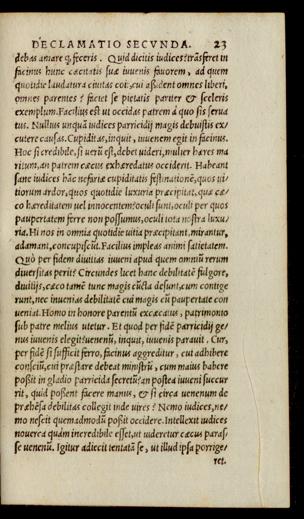 DECLAMATIO SECVNDA. 23
debas amare q̃ feceris. Quid dicitis iudices? trãsferet in
facinus hunc cæcitatis suæ iuuenis fauorem, ad quem
quotidie laudatura ciuitas coit, cui assident omnes liberi,
omnes parentes? faciet se pietatis pariter & sceleris
exemplum. Facilius est ut occidas patrem à quo sis serua
tus. Nullus unquã iudices parricidij magis debuistis ex-
cutere causas. Cupiditas, inquit, iuuenem egit in facinus.
Hoc si credibile, si uerũ est, debet uideri, mulier hæres ma
ritum, an patrem cæcus exhæredatus occiderit. Habeant
sane iudices hãc nefariæ cupiditatis festinationē, quos ui-
tiorum ardor, quos quotidie luxuria præcipitat, quæ cæ-
co hæreditatem uel innocentem? oculi sunt, oculi per quos
paupertatem ferre non possumus, oculi tota nostra luxu-
ria. Hi nos in omnia quotidie uitia præcipitant, mirantur,
adamant, concupiscũt. Facilius impleas animi satietatem.
Quò per fidem diuitias iuueni apud quem omniũ rerum
diuersitas perit? Circundes licet hanc debilitatē fulgore,
diuitijs, cæco tamē tunc magis cũcta desunt, cum contige
runt, nec inuenias debilitatē cui magis cũ paupertate con
ueniat. Homo in honore parentũ excæcatus, patrimonio
sub patre melius utetur. Et quod per fidē parricidij ge-
nus iuuenis elegit? uenenũ, inquit, iuuenis parauit. Cur,
per fidē si sufficit ferro, facinus aggreditur, cui adhibere
consciũ, cui præstare debeat ministrũ, cum maius habere
possit in gladio parricida secretũ? an postea iuueni succur
rit, quid possent facere manus, & si circa uenenum de
præhēsa debilitas collegit inde uires? Nemo iudices, ne-
mo nescit quemadmodũ possit occidere. Intellexit iudices
nouerca quàm incredibile esset, ut uideretur cæcus paras-
se uenenũ. Igitur adiecit tentatã se, ut illud ipsa porrige-
ret.